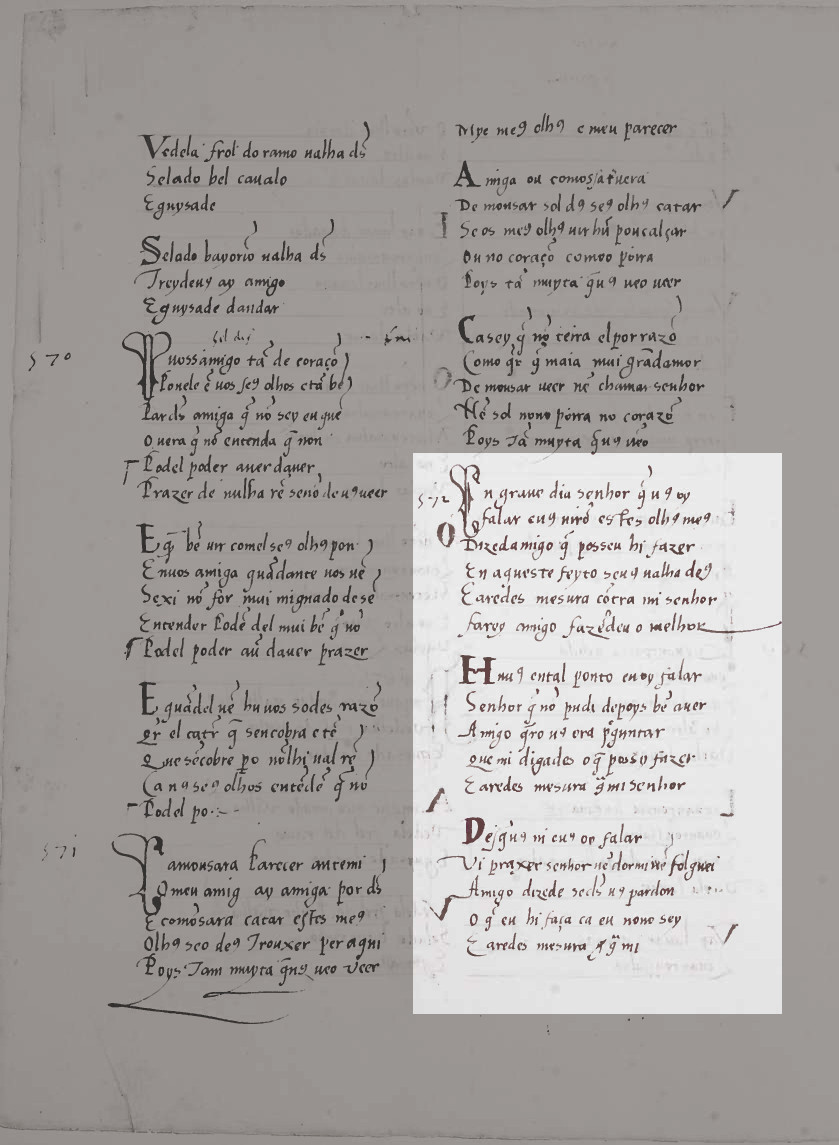 Vedela frol do ramo ualha ds̃
Selado bel caualo
Eguysade
Selado bayorio ualha ds̃
Treydeus ay amigo
Eguysade dandar
570
uossamigo tã de coraçõ
Ponele ẽ uos seꝯ olhos e tã bẽ
Par ds̃ amiga q̃ nõ sey eu que
O uera q̃ nõ entenda q̃ non
Podel poder auer dauer
Prazer de nulha rẽ senõ de uꝯ ueer
E q̃ bẽ uir comel seꝯ olhꝯ pon
Enuos amiga quãdante uos uẽ
Se xi nõ for mui mignado de sẽ
Entender Podẽ del mui bẽ q̃ nõ
Podel poder au᷉ dauer prazer
E quãdel uẽ hu uos sodes razõ
Qr̃ el catr̃ q̃ sencobra e tẽ
Que sẽcobre po nõlhi ual rẽ
Ca nꝯ seꝯ olhos entẽdẽ q̃ nõ
Podel po
571
amousara Parecer ante mi
O meu amig ay amiga por ds̃
E comousara catar estes meꝯ
Olhꝯ seo deꝯ Trouxer per aqui
Poys Tam muyta q̃ nꝯ ueo ueer
Mye meꝯ olhꝯ e meu parecer
Amiga ou comosjatreuera
De mousar sol dꝯ seꝯ olhꝯ catar
Se os meꝯ olhꝯ uir hũ poucalçar
Ou no coraçõ comoo porra
Poys tã muyta q̃ nꝯ ueo ueer
Ca sey q̃ nõ teira el por razõ
Como qr̃ q̃ maia mui grãdamor
De mousar ueer nẽ chamar senhor
Nẽ sol nono porra no corazõ
Poys Tã muyta q̃ nꝯ ueo
572
En graue dia senhor q̃ uꝯ oy
falar e uꝯ uirõ estes olhꝯ meꝯ
Dizedamigo q̃ posseu hi fazer
En aqueste feyto se uꝯ ualha deꝯ
E aredes mesura cõtra mi senhor
farey amigo fazẽdeu o melhor
Hu uꝯ en tal ponto eu oy falar
Senhor q̃ nõ pudi depoys bẽ auer
Amigo q̃ro uꝯ era p̃guntar
Que mi digades o q̃ posso fazer
E aredes mesura q̃ mi senhor
Desq̃ uꝯ ui e uꝯ oy falar
Vi prazer senhor nẽ dormi nẽ folguei
Amigo dizede se ds̃ uꝯ pardon
O q̃ eu hi faça ca eu nono sey
E aredes mesura q̃ mi